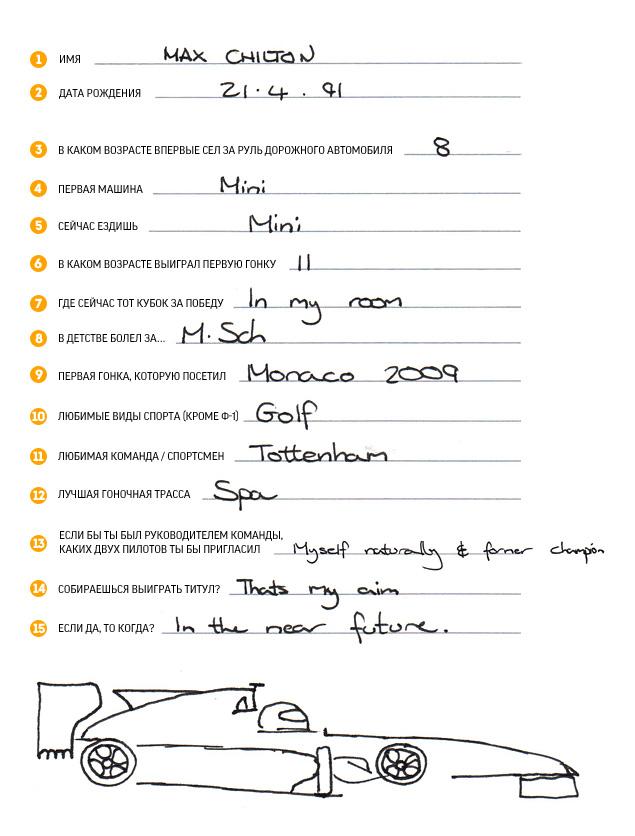 1 ИМЯ MAX CHILTON
2 ДАТА РОЖДЕНИЯ 21.4.91
3 В КАКОМ ВОЗРАСТЕ ВПЕРВЫЕ СЕЛ ЗА РУЛЬ ДОРОЖНОГО АВТОМОБИЛЯ 8
4 ПЕРВАЯ МАШИНА Mini
5 СЕЙЧАС ЕЗДИШЬ Mini
6 В КАКОМ ВОЗРАСТЕ ВЫИГРАЛ ПЕРВУЮ ГОНКУ 11
7 ГДЕ СЕЙЧАС ТОТ КУБОК ЗА ПОБЕДУ In my room
8 В ДЕТСТВЕ БОЛЕЛ ЗА... M.Sch
9 ПЕРВАЯ ГОНКА, КОТОРУЮ ПОСЕТИЛ Monaco 2009
10 ЛЮБИМЫЕ ВИДЫ СПОРТА (КРОМЕ Ф-1) Golf
11 ЛЮБИМАЯ КОМАНДА / СПОРТСМЕН Tottenham
12 ЛУЧШАЯ ГОНОЧНАЯ ТРАССА Spa
13 ЕСЛИ БЫ ТЫ БЫЛ РУКОВОДИТЕЛЕМ КОМАНДЫ,
КАКИХ ДВУХ ПИЛОТОВ ТЫ БЫ ПРИГЛАСИЛ Myself naturally & former champion
14 СОБИРАЕШЬСЯ ВЫИГРАТЬ ТИТУЛ? Thats my aim
15 ЕСЛИ ДА, ТО КОГДА? In the near future.